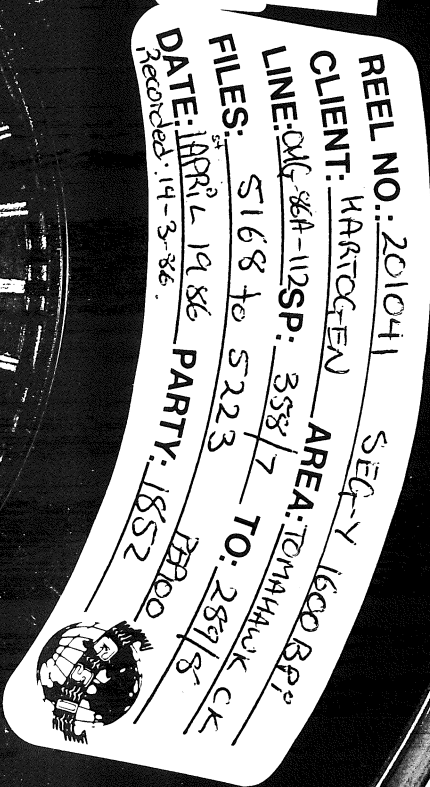 REEL NO.: 201041 SEG-Y 1600 BPI
CLIENT: HARTOGEN AREA: TOMAHAWK CK
LINE: OMG-86A-112 SP: 358/7 TO: 289/8
FILES: 5168 to 5223
DATE: 1st APRIL 1986 PARTY: 1852
Recorded: 14-3-86.